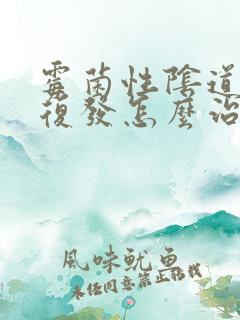 霉菌性陰道
復發怎麼治
風味魷魚
未经同意禁止转载